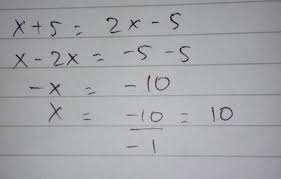 x + 5 = 2x - 5
x - 2x = -5 - 5
-x = -10
x = -10/-1 = 10